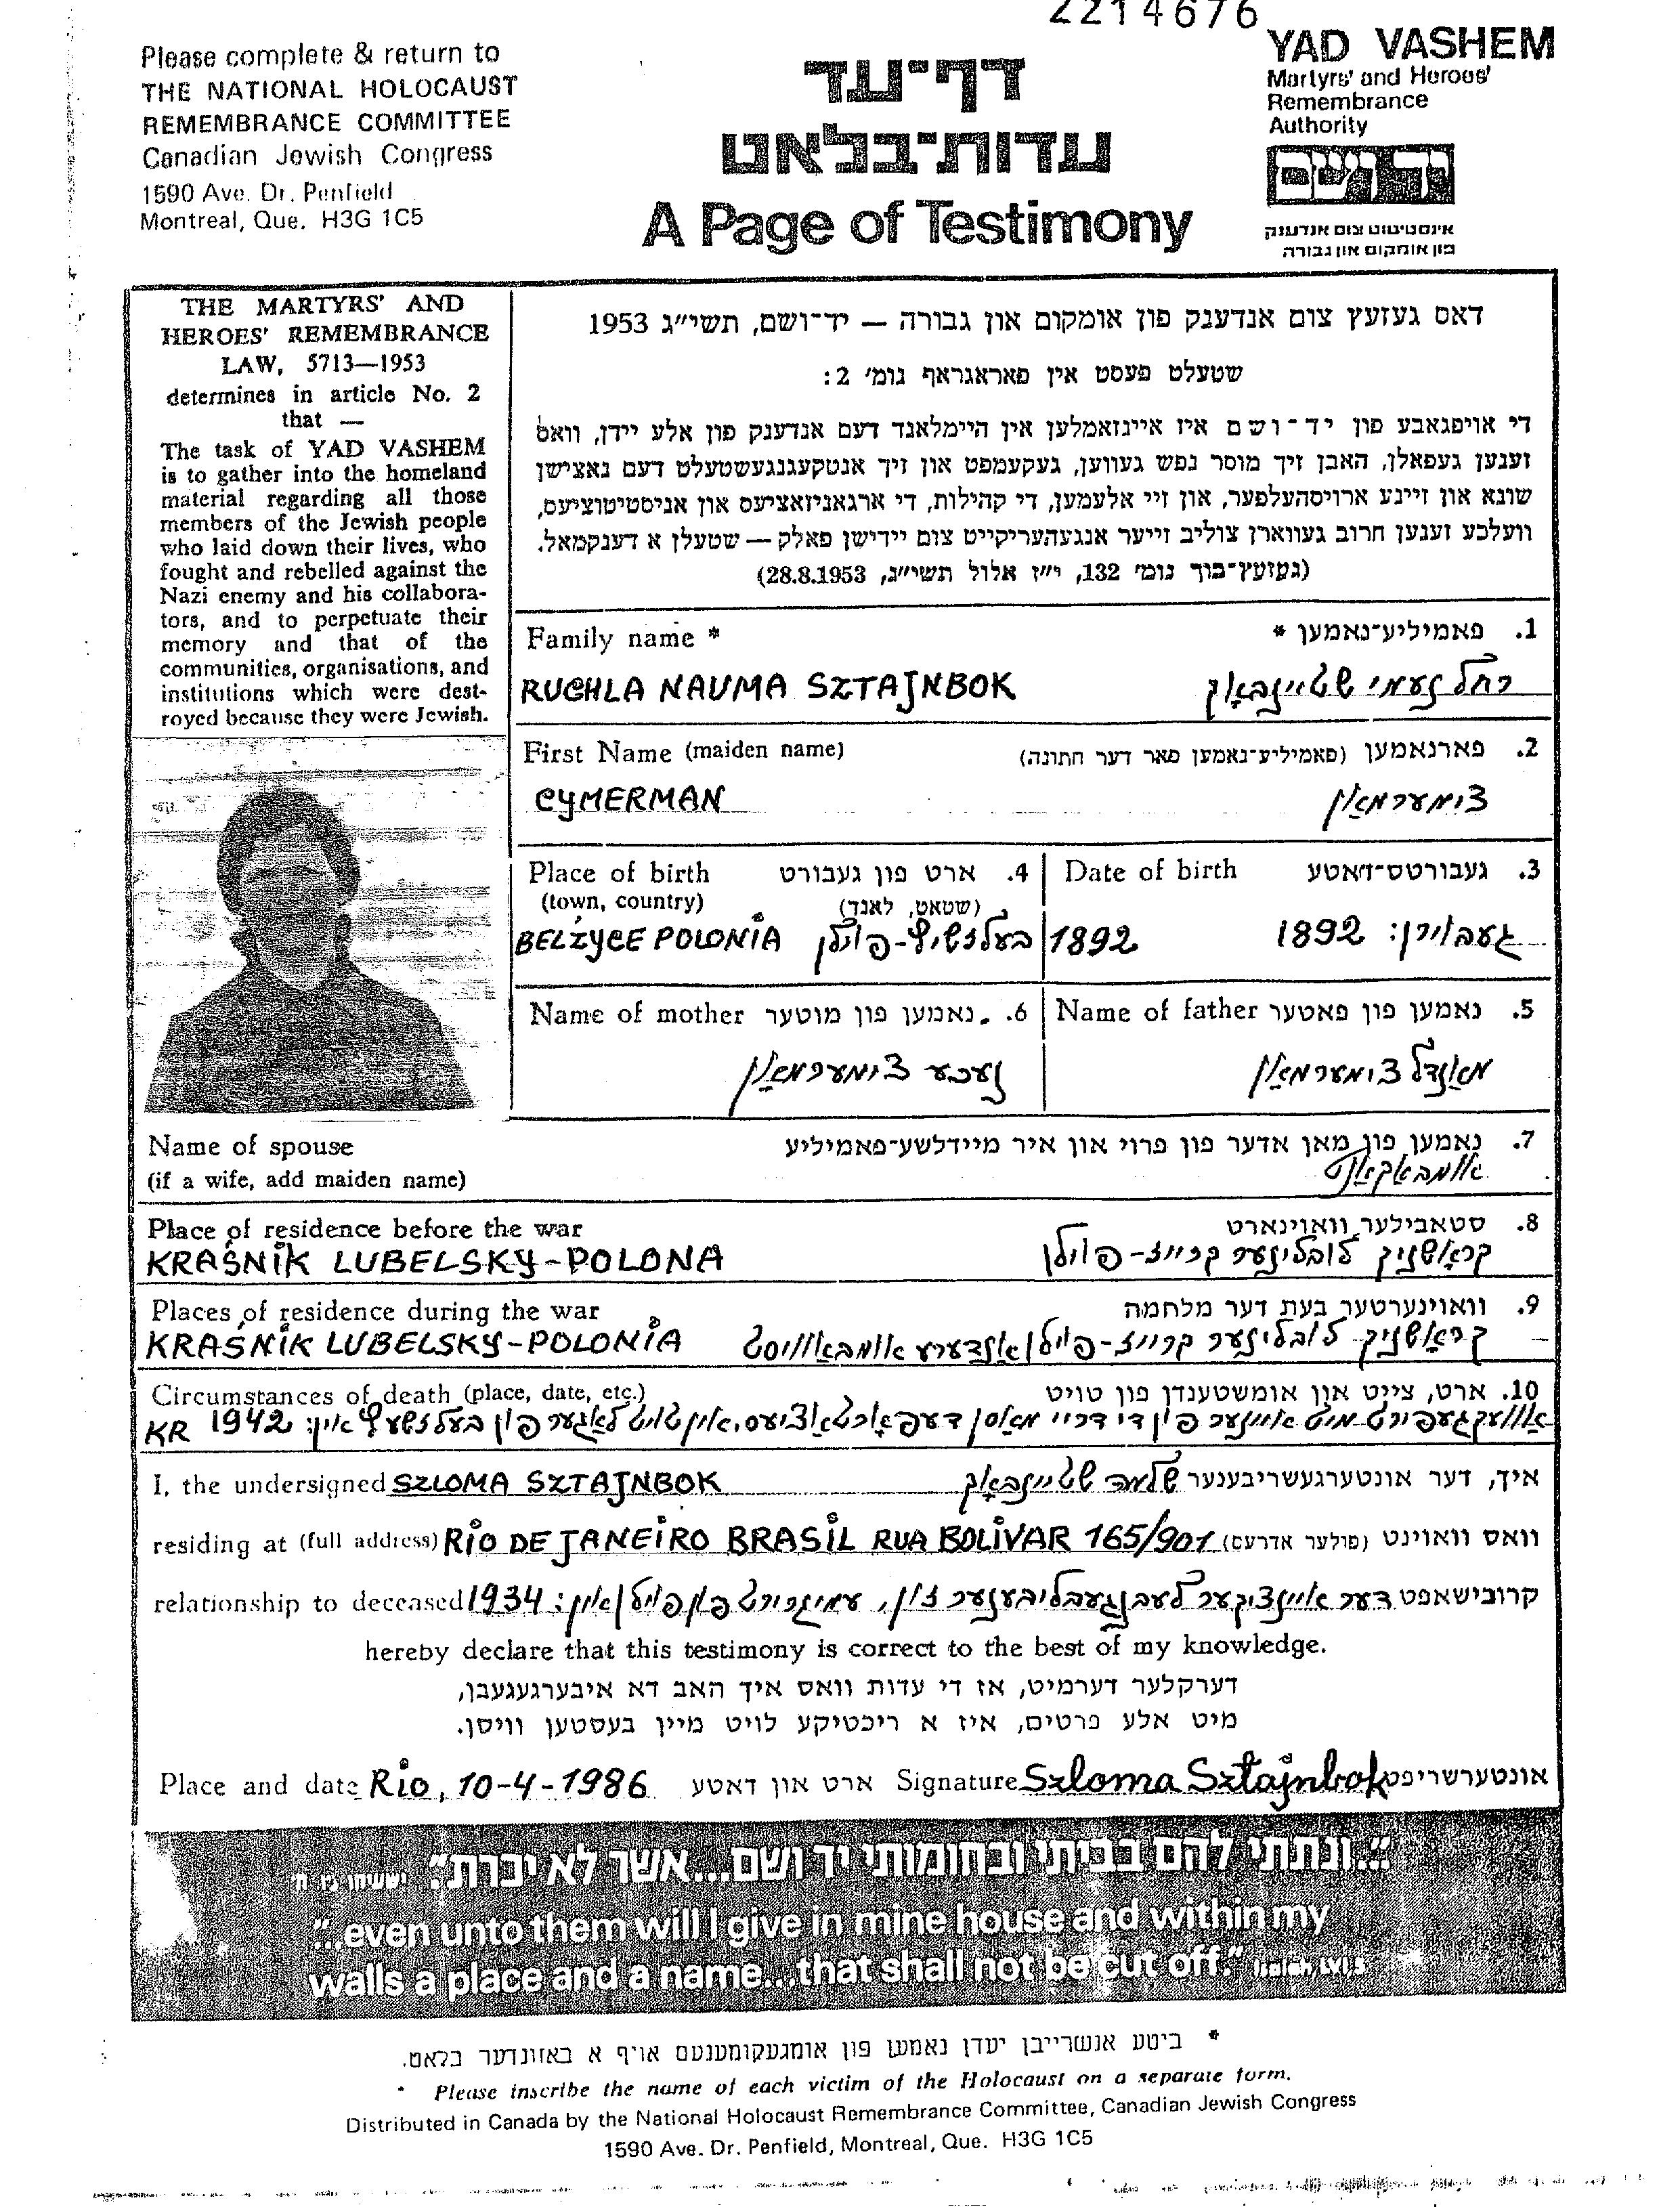 2214676
Please complete & return to
THE NATIONAL HOLOCAUST
REMEMBRANCE COMMITTEE
Canadian Jewish Congress
1590 Ave. Dr. Penfield
Montreal, Que. H3G 1C5
דף־עד
עדות־בלאט
A Page of Testimony
YAD VASHEM
Martyrs' and Heroes'
Remembrance
Authority
יד ושם
אינסטיטוט צום אנדענק
פון אומקום און גבורה
THE MARTYRS' AND
HEROES' REMEMBRANCE
LAW, 5713—1953
determines in article No. 2
that —
The task of YAD VASHEM
is to gather into the homeland
material regarding all those
members of the Jewish people
who laid down their lives, who
fought and rebelled against the
Nazi enemy and his collabora-
tors, and to perpetuate their
memory and that of the
communities, organisations, and
institutions which were dest-
royed because they were Jewish.
דאס געזעץ צום אנדענק פון אומקום און גבורה — יד־ושם, תשי״ג 1953
שטעלט פעסט אין פאראגראף נומ׳ 2:
די אויפגאבע פון יד־ושם איז איינזאמלען אין היימלאנד דעם אנדענק פון אלע יידן, וואס
זענען געפאלן, האבן זיך מוסר נפש געווען, געקעמפט און זיך אנטקעגנגעשטעלט דעם נאצישן
שונא און זיינע ארויסהעלפער, און זיי אלעמען, די קהילות, די ארגאניזאציעס און אניסטיטוציעס,
וועלכע זענען חרוב געווארן צוליב זייער אנגעהעריקייט צום יידישן פאלק — שטעלן א דענקמאל.
(געזעץ־בוך נומ׳ 132, י״ז אלול תשי״ג, 28.8.1953)
Family name * 1. פאמיליע־נאמען *
RUCHLA NAUMA SZTAJNBOK רחל נעמי שטיינבאָק
First Name (maiden name) 2. פארנאמען (פאמיליע־נאמען פאר דער חתונה)
CYMERMAN צימערמאַן
Place of birth 4. ארט פון געבורט
(town, country) (שטאט, לאנד)
BELŻYCE POLONIA בעלזשיץ-פוילן
Date of birth 3. געבורטס־דאטע
1892 געבוירן: 1892
Name of mother 6. נאמען פון מוטער
נעכע צימערמאַן
Name of father 5. נאמען פון פאטער
מאַנדל צימערמאַן
Name of spouse 7. נאמען פון מאן אדער פון פרוי און איר מיידלשע־פאמיליע
(if a wife, add maiden name) אומבאַקאַנט
Place of residence before the war 8. סטאבילער וואוינארט
KRAŚNIK LUBELSKY-POLONA קראָשניק לובלינער קרייז-פוילן
Places of residence during the war 9. וואוינערטער בעת דער מלחמה
KRAŚNIK LUBELSKY-POLONIA קראָשניק לובלינער קרייז-פוילן אַנדערע אומבאַוואוסט
Circumstances of death (place, date, etc.) 10. ארט, צייט און אומשטענדן פון טויט
KR אַוועקגעפירט מיט איינער פון די דריי מאַסן דעפּאָרטאַציעס, אין טויט לאַגער פון בעלזשעץ אין: 1942
I, the undersigned SZLOMA SZTAJNBOK איך, דער אונטערגעשריבענער שלמה שטיינבאָק
residing at (full address) RIO DE JANEIRO BRASIL RUA BOLIVAR 165/901 וואס וואוינט (פולער אדרעס)
relationship to deceased קרובישאפט דער איינציקער לעבנגעבליבענער זון, עמיגרירט פון פוילן אין: 1934
hereby declare that this testimony is correct to the best of my knowledge.
דערקלער דערמיט, אז די עדות וואס איך האב דא איבערגעגעבן,
מיט אלע פרטים, איז א ריכטיקע לויט מיין בעסטען וויסן.
Place and date Rio, 10-4-1986 ארט און דאטע Signature Szloma Sztajnbok אונטערשריפט
"...ונתתי להם בביתי ובחומותי יד ושם...אשר לא יכרת." ישעיהו נו ה׳
"...even unto them will I give in mine house and within my
walls a place and a name...that shall not be cut off." Isaiah, LVI, 5
* ביטע אנשרייבן יעדן נאמען פון אומגעקומענעם אויף א באזונדער בלאט.
* Please inscribe the name of each victim of the Holocaust on a separate form.
Distributed in Canada by the National Holocaust Remembrance Committee, Canadian Jewish Congress
1590 Ave. Dr. Penfield, Montreal, Que. H3G 1C5